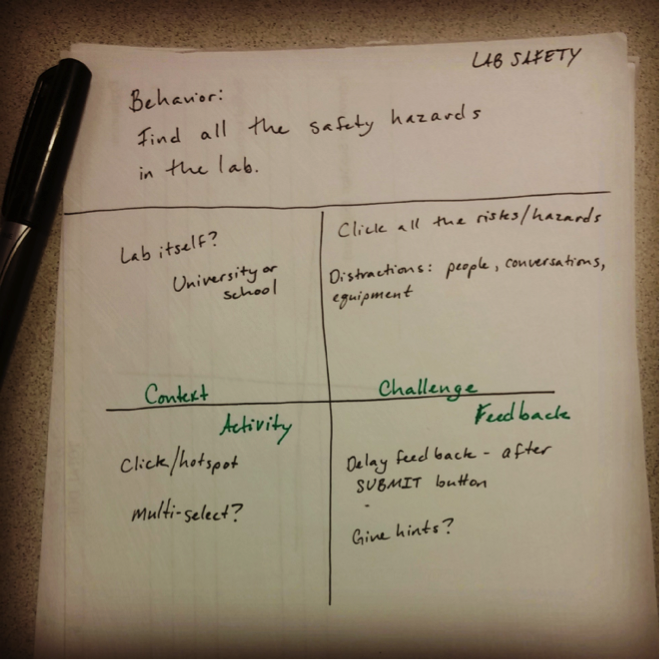 LAB SAFETY
Behavior:
Find all the safety hazards
in the lab.
Lab itself?
University or
school
Context
Click all the risks/hazards
Distractions: people, conversations,
equipment
Challenge
Activity
Click/hotspot
Multi-select?
Feedback
Delay feedback - after
SUBMIT button
-
Give hints?